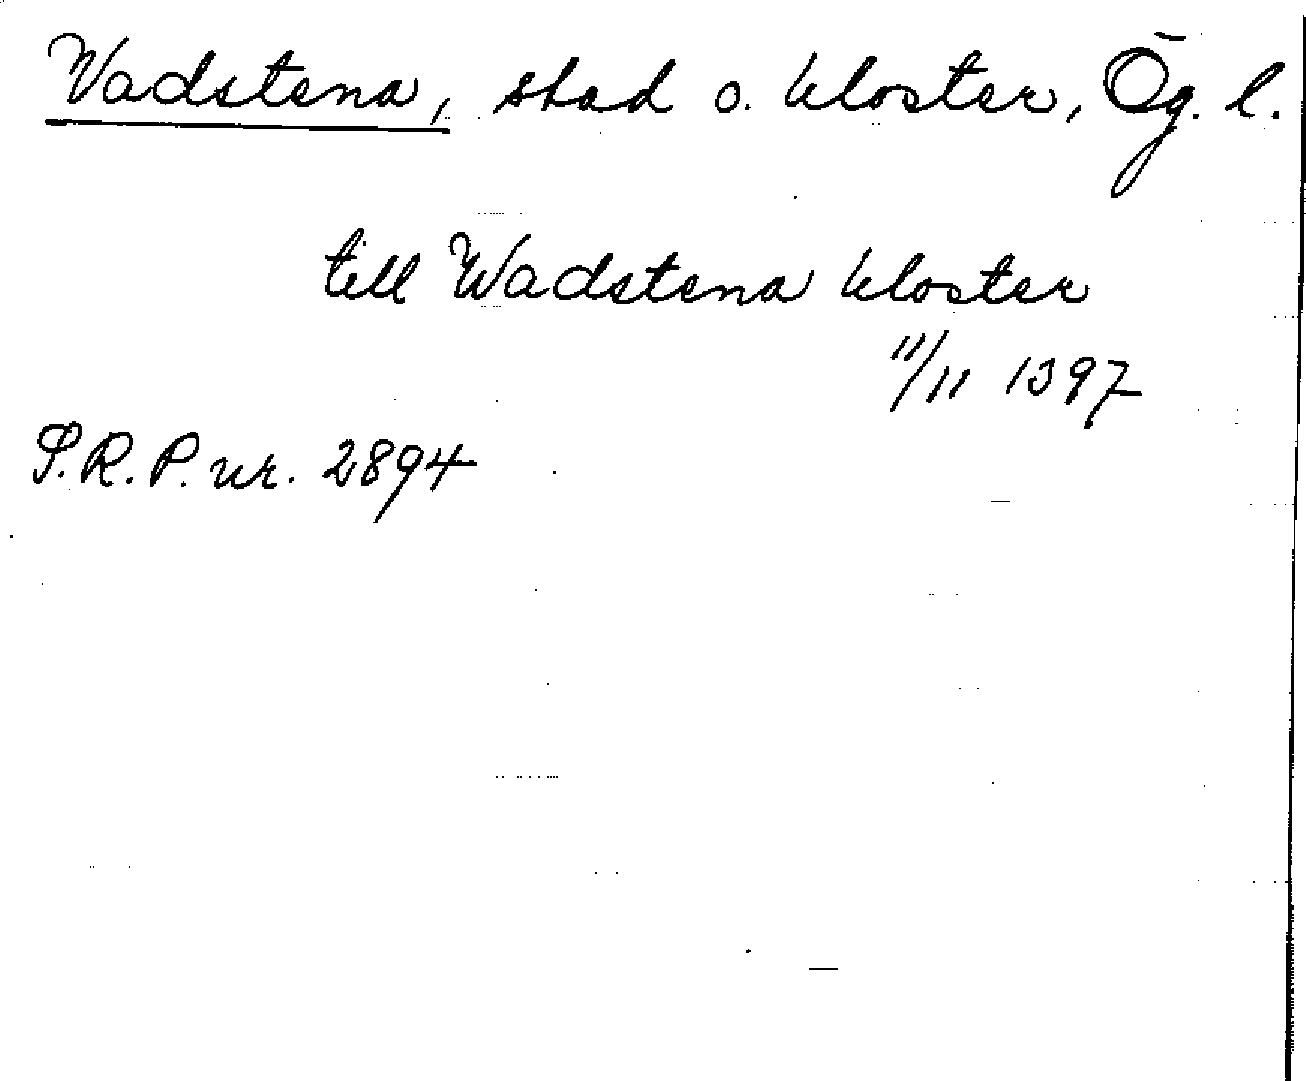 Vadstena, stad o. kloster, Ög. l.
till Wadstena kloster
11/11 1397
S.R.P. nr. 2894